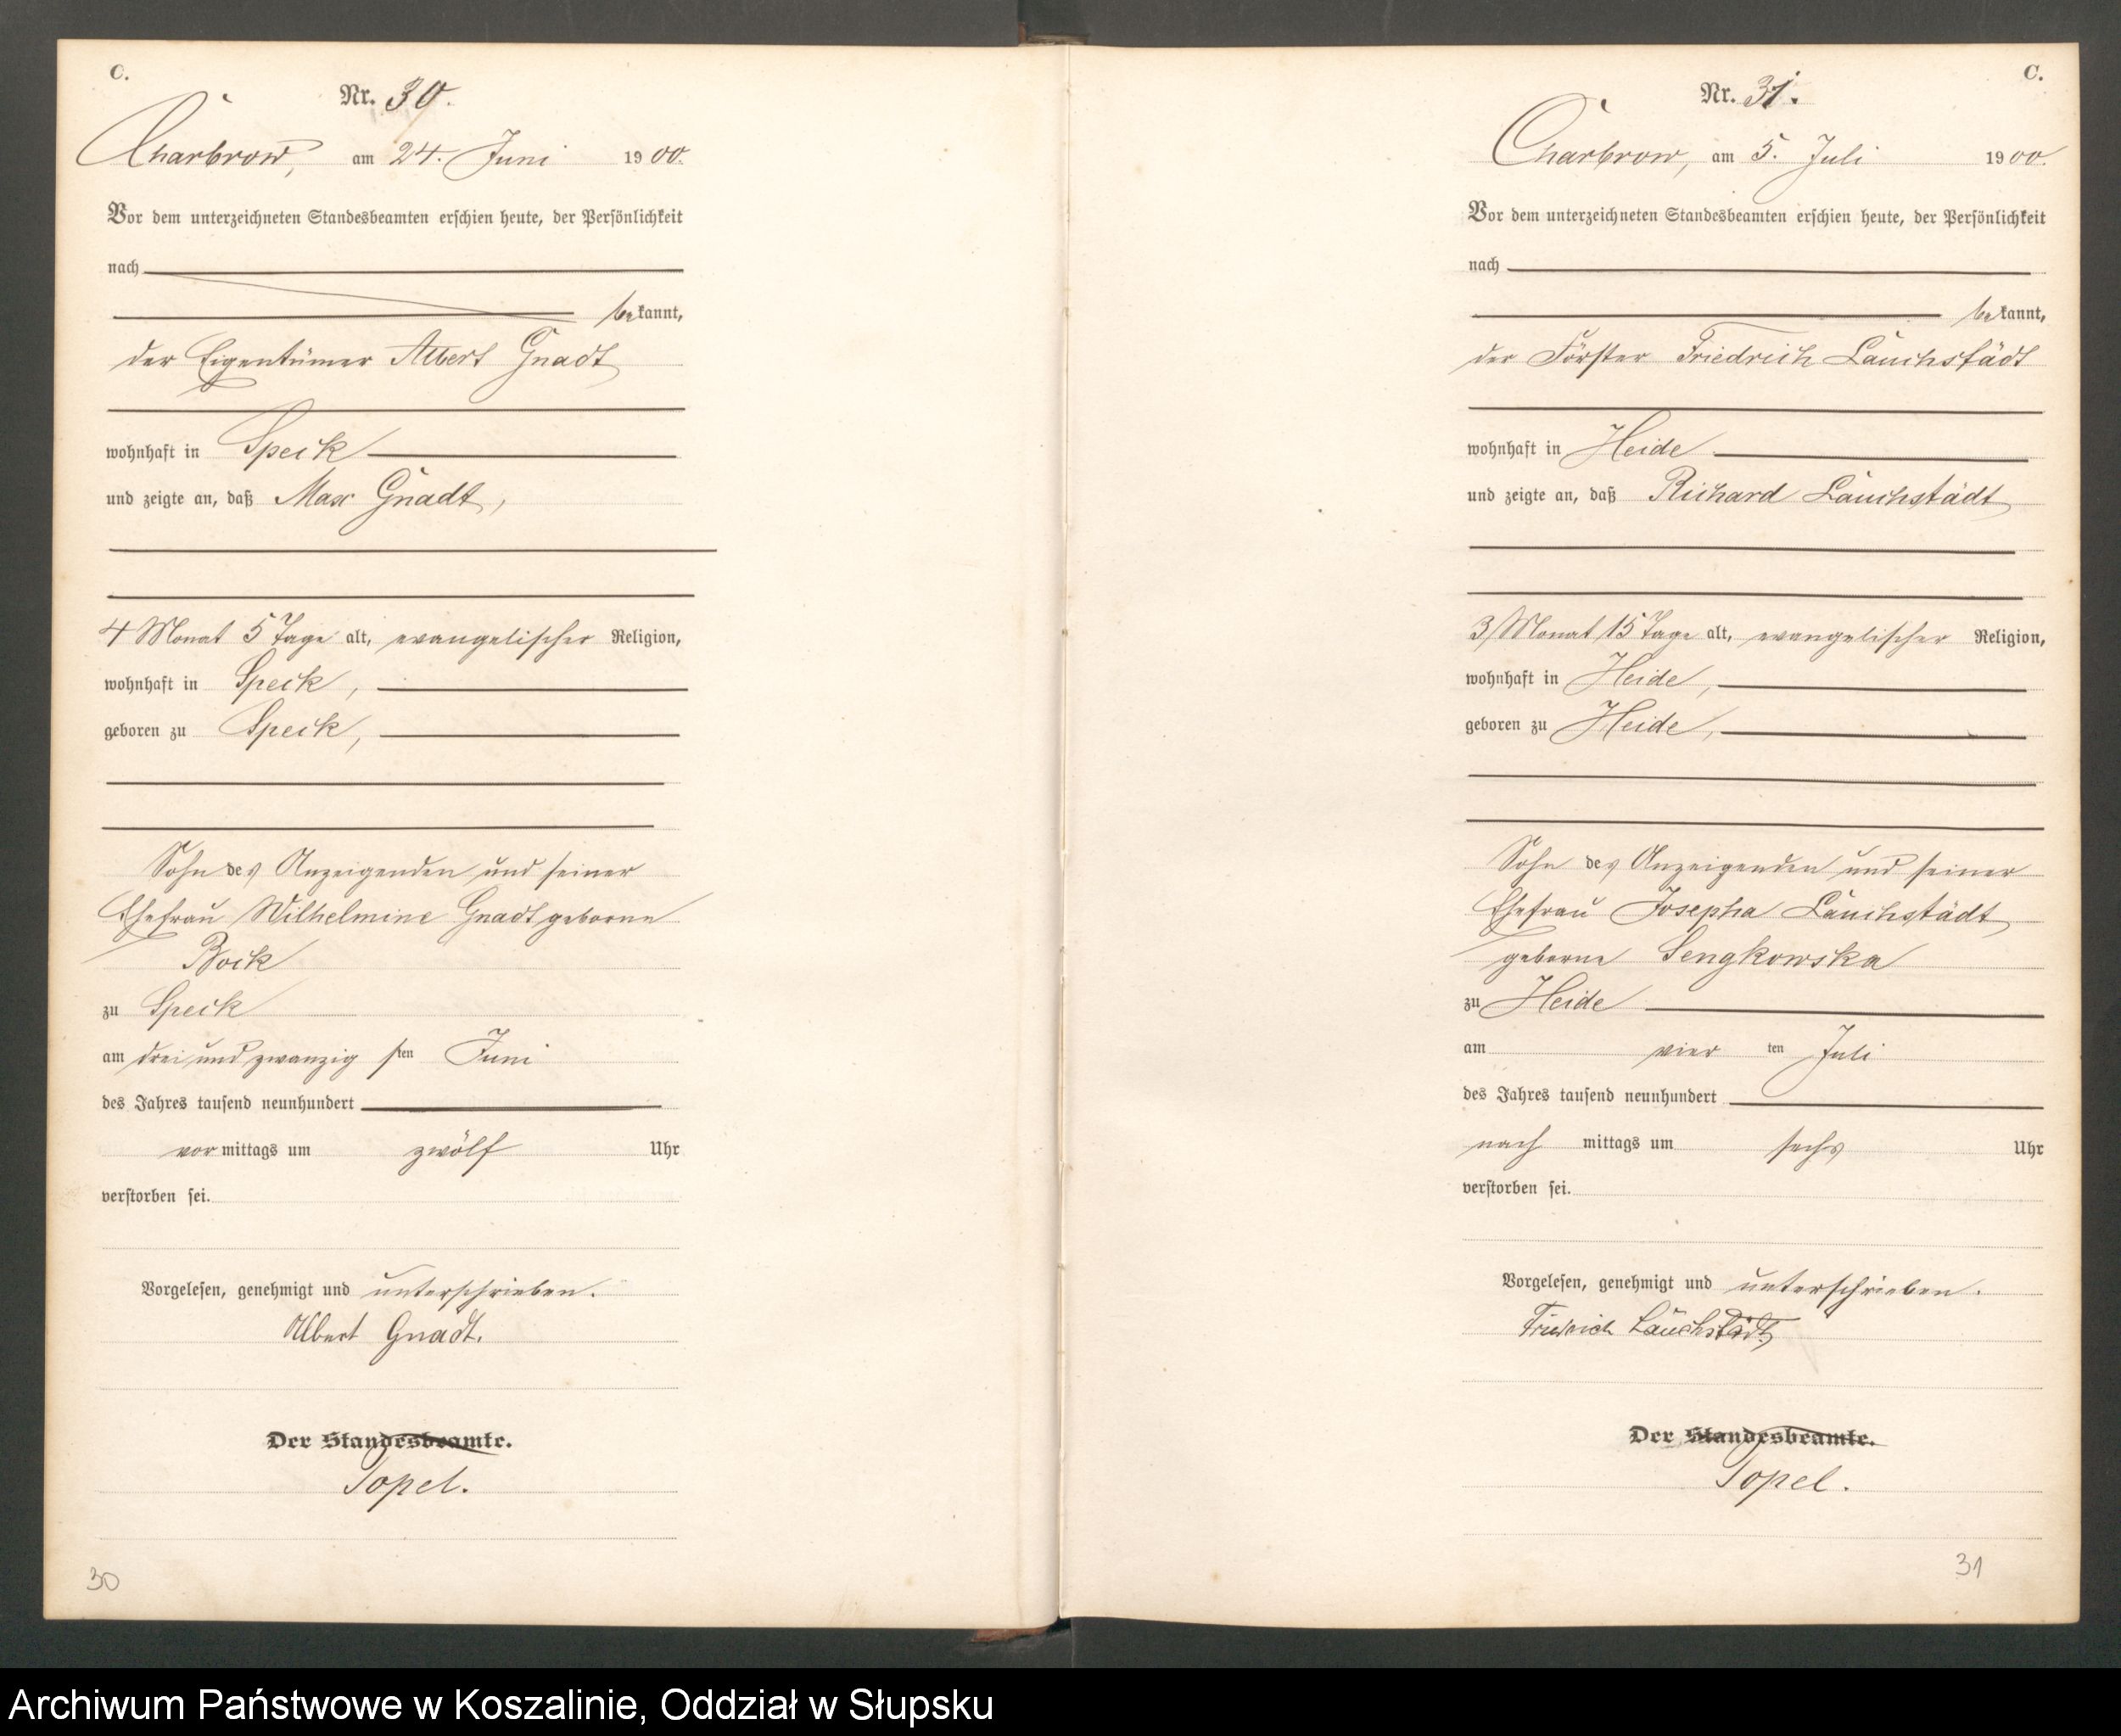 C.
Nr. 30.
Charbrow, am 24. Juni 1900.
Vor dem unterzeichneten Standesbeamten erschien heute, der Persönlichkeit
nach
bekannt,
der Eigentümer Albert Gnadt
wohnhaft in Speck
und zeigte an, daß Max Gnadt,
4 Monat 5 Tage alt, evangelischer Religion,
wohnhaft in Speck,
geboren zu Speck,
Sohn des Anzeigenden und seiner
Ehefrau Wilhelmine Gnadt geborne
Bock
zu Speck
am drei und zwanzigsten Juni
des Jahres tausend neunhundert
vormittags um zwölf Uhr
verstorben sei.
Vorgelesen, genehmigt und unterschrieben.
Albert Gnadt.
Der Standesbeamte.
Topel.
30
C.
Nr. 31.
Charbrow, am 5. Juli 1900.
Vor dem unterzeichneten Standesbeamten erschien heute, der Persönlichkeit
nach
bekannt,
der Förster Friedrich Läuchstädt
wohnhaft in Heide
und zeigte an, daß Richard Läuchstädt
3 Monat 15 Tage alt, evangelischer Religion,
wohnhaft in Heide,
geboren zu Heide,
Sohn des Anzeigenden und seiner
Ehefrau Josepha Läuchstädt
geborne Sengkowska
zu Heide
am vierten Juli
des Jahres tausend neunhundert
nachmittags um sechs Uhr
verstorben sei.
Vorgelesen, genehmigt und unterschrieben.
Friedrich Läuchstädt
Der Standesbeamte.
Topel.
31
Archiwum Państwowe w Koszalinie, Oddział w Słupsku